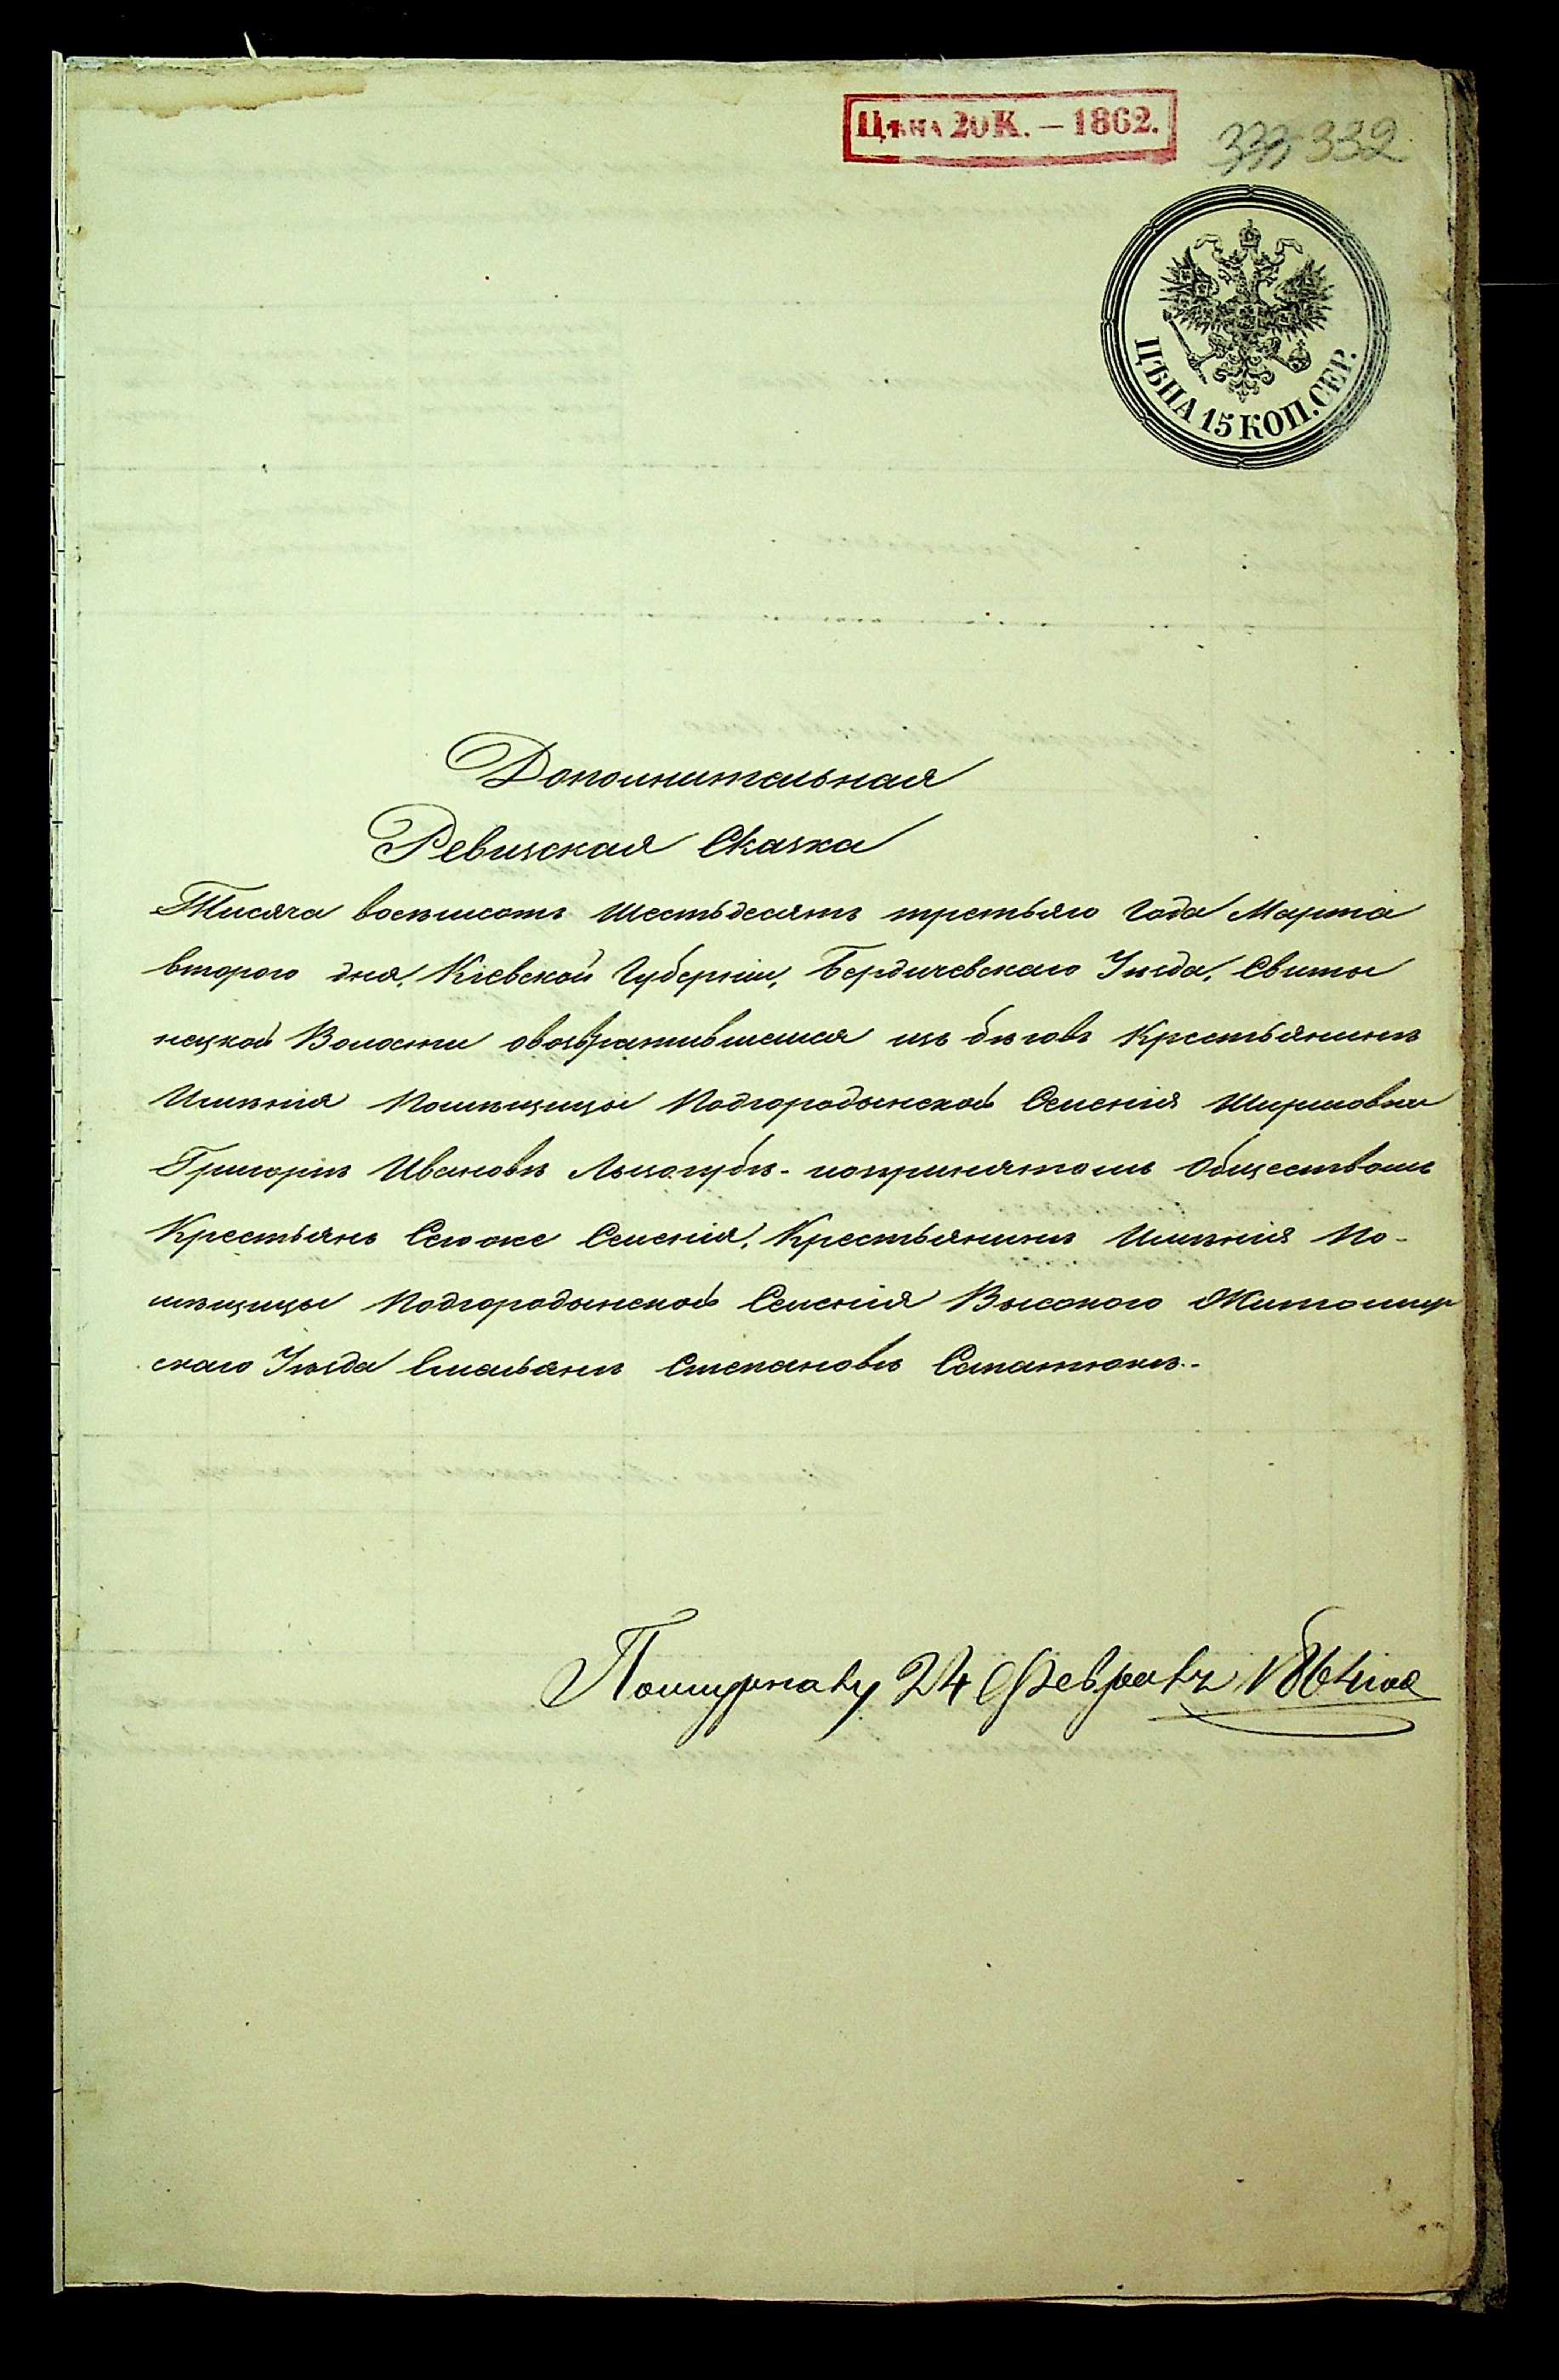 ЦѢНА 20 К. – 1862.
332
ЦѢНА 15 КОП. СЕР.
Дополнительная
Ревизская Сказка
Тисяча восѣмсотъ Шестьдесятъ третьяго Года Марта
второго дня, Кіевской Губерніи, Бердичевскаго Уѣзда, Свиты
нецкой Волости овозвратившемся изъ бѣговъ Крестьянинѣ
Имѣнія Помѣщицы Подгородынской Селенія Ширмовки
Григоріѣ Ивановѣ Лызогубѣ - ипопринятомъ Обществомъ
Крестьянъ Сегоже Селенія, Крестьянинѣ Имѣнія По-
мѣщицы Подгородынской Селенія Высокого Житомир
скаго Уѣзда Емельянѣ Степановѣ Сопатюкѣ.-
24 Февраля 1864 года